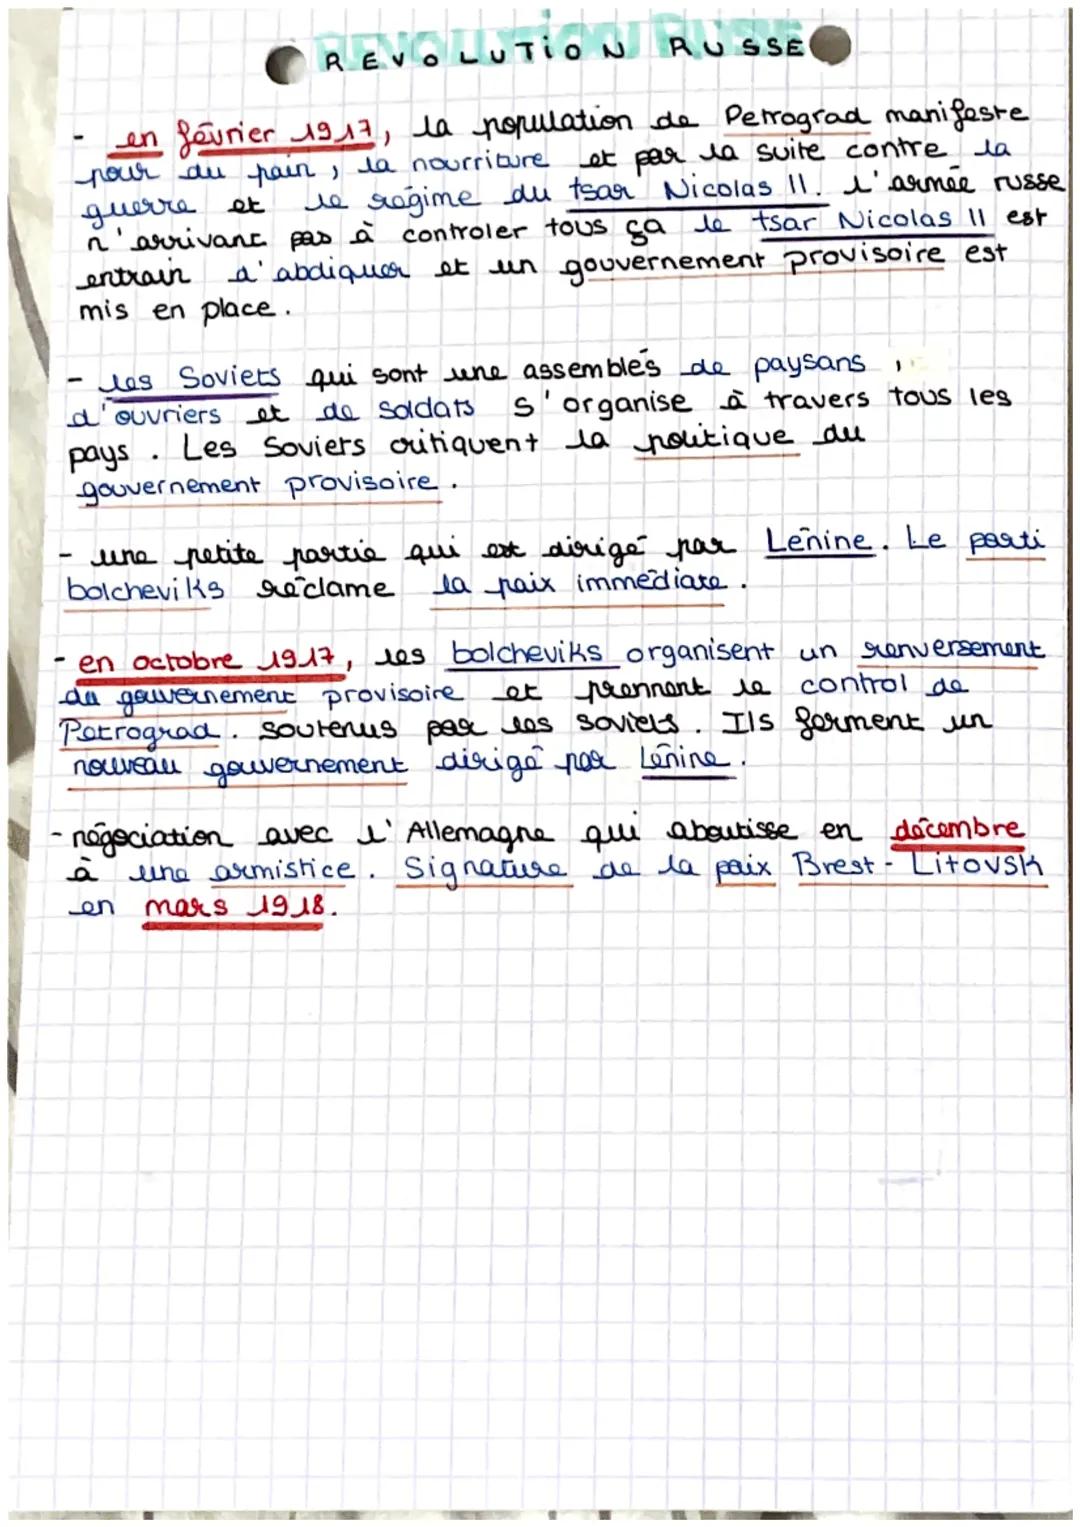 REVOLUTION RUSSE
- en février 1917, la population de Petrograd manifeste
pour du pain, la nourriture et par la suite contre la
guerre et le régime du tsar Nicolas II. l'armée russe
n'arrivant pas à controler tous ça le tsar Nicolas II est
entrain d'abdiquer et un gouvernement provisoire est
mis en place.
- les Soviets qui sont une assemblés de paysans,
d'ouvriers et de soldats s'organise à travers tous les
pays. Les Soviets critiquent la politique du
gouvernement provisoire.
- une petite partie qui est dirigé par Lénine. Le parti
bolcheviks réclame la paix immédiate.
- en octobre 1917, les bolcheviks organisent un renversement
du gouvernement provisoire et prennent le control de
Petrograd. Soutenus par les soviets. Ils forment un
nouveau gouvernement dirigé par Lénine.
- négociation avec l'Allemagne qui aboutisse en décembre
à une armistice. Signature de la paix Brest-Litovsk
en mars 1918.